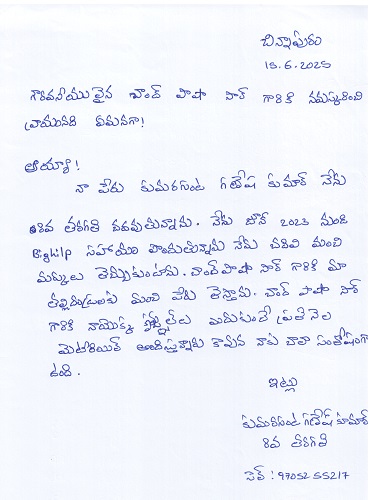 చిన్నాపురం
15.6.2025
గౌరవనీయు లైన చాంద్ పాషా సార్ గారికి నమస్కరించి
వ్రాయునది ఏమనగా!
అయ్యా!
నా పేరు కుమరసంట గణేష్ కుమార్ నేను
8వ తరగతి చదవుతున్నాను. నేను జూన్ 2023 నుండి
Bighelp సహాయం పొందుతున్నాను నేను చదివి మంచి
మార్కులు తెచ్చుకుంటాను. చాంద్ పాషా సార్ గారికి మా
తల్లిదండ్రులకు మంచి పేరు తెస్తాను. చాంద్ పాషా సార్
గారికి నాయొక్క ఎందుకంటే ప్రతినెల
మెటీరియల్ అందిస్తున్నారు కావున నాకు చాలా సంతోషంగా
ఉంది.
ఇట్లు
కుమరసంట గణేష్ కుమార్
8వ తరగతి
సెల్ : 9705255217